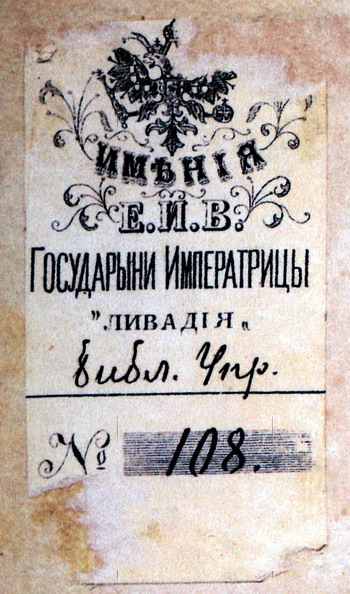 ИМѢНІЯ
Е.И.В.
ГОСУДАРЫНИ ИМПЕРАТРИЦЫ
„ЛИВАДІЯ„
Библ. Упр.
№ 108.